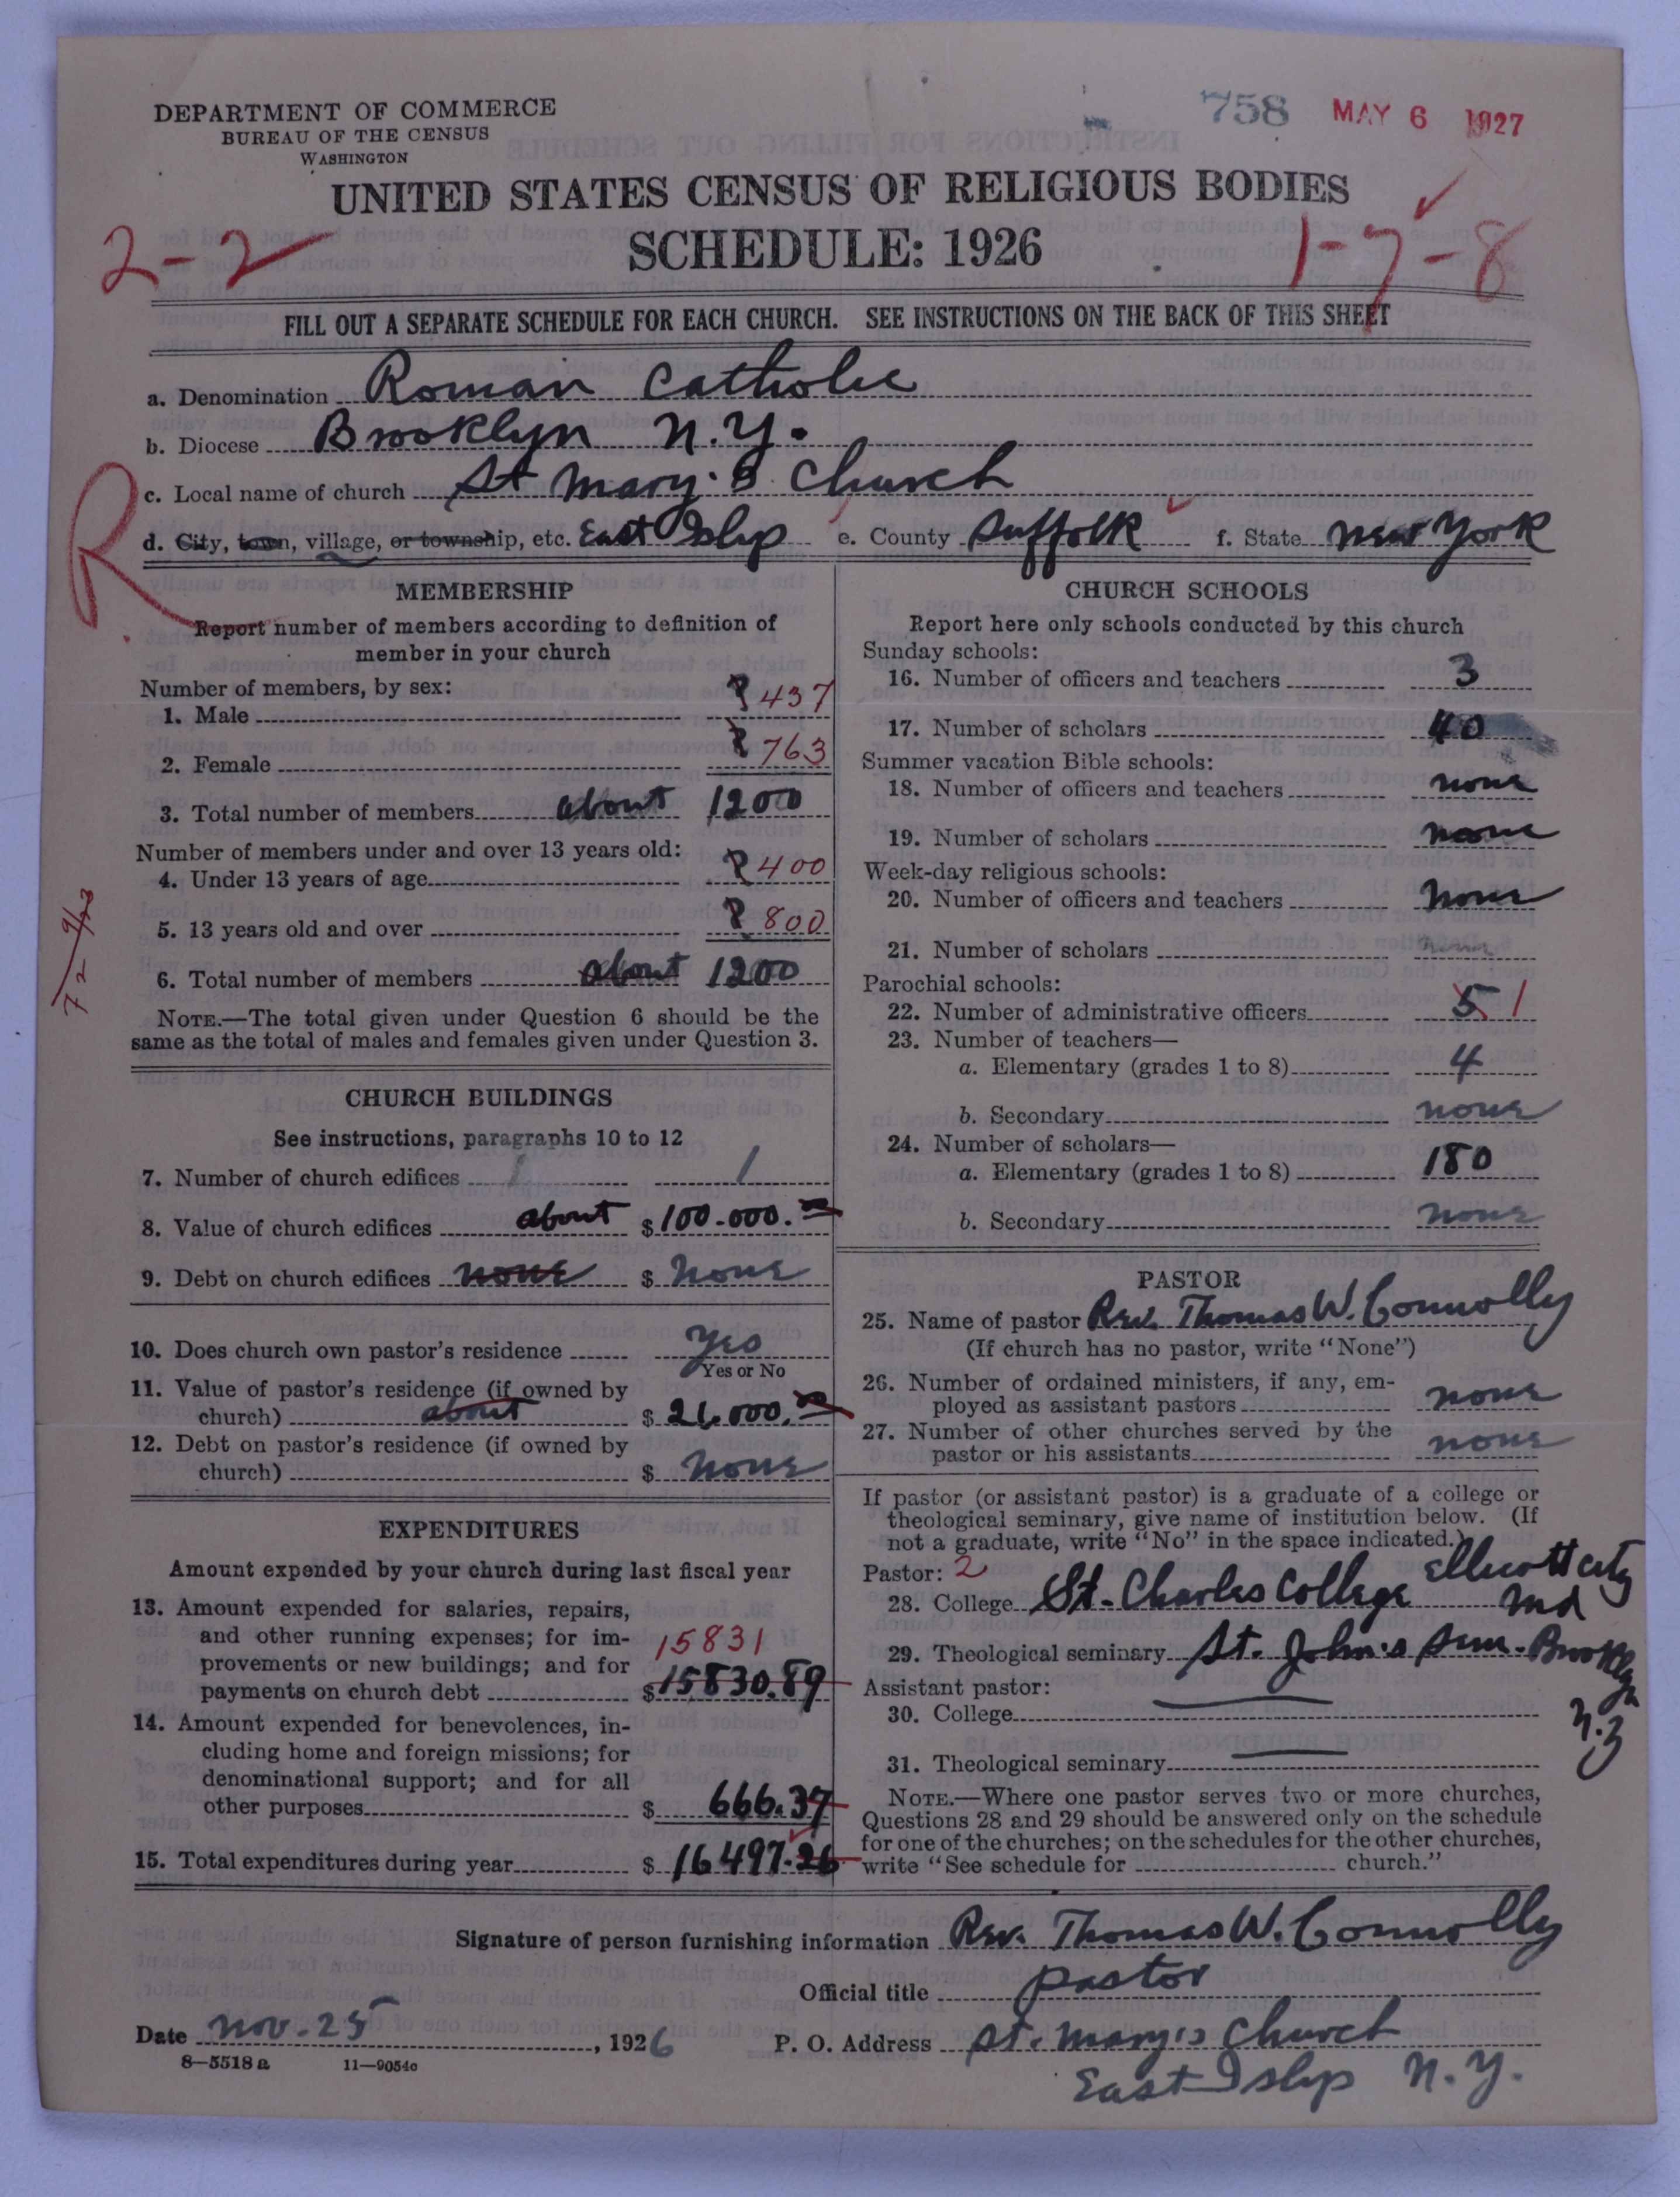 DEPARTMENT OF COMMERCE
BUREAU OF THE CENSUS
WASHINGTON
758 MAY 6 1927
UNITED STATES CENSUS OF RELIGIOUS BODIES
SCHEDULE: 1926
2-2
1-7-8
FILL OUT A SEPARATE SCHEDULE FOR EACH CHURCH. SEE INSTRUCTIONS ON THE BACK OF THIS SHEET
a. Denomination Roman Catholic
b. Diocese Brooklyn N.Y.
c. Local name of church St Mary's Church
R
d. City, town, village, or township, etc. East Islip e. County Suffolk f. State New York
MEMBERSHIP
Report number of members according to definition of
member in your church
Number of members, by sex:
1. Male ? 437
2. Female ? 763
3. Total number of members about 1200
Number of members under and over 13 years old:
4. Under 13 years of age ? 400
5. 13 years old and over ? 800
6. Total number of members about 1200
NOTE.—The total given under Question 6 should be the
same as the total of males and females given under Question 3.
CHURCH BUILDINGS
See instructions, paragraphs 10 to 12
7. Number of church edifices 1 1
8. Value of church edifices about $ 100.000.00
9. Debt on church edifices none $ None
10. Does church own pastor's residence Yes
Yes or No
11. Value of pastor's residence (if owned by
church) about $ 21.000.00
12. Debt on pastor's residence (if owned by
church) $ None
EXPENDITURES
Amount expended by your church during last fiscal year
13. Amount expended for salaries, repairs,
and other running expenses; for im-
provements or new buildings; and for 15831
payments on church debt $ 15830.89
14. Amount expended for benevolences, in-
cluding home and foreign missions; for
denominational support; and for all
other purposes $ 666.37
15. Total expenditures during year $ 16497.26
CHURCH SCHOOLS
Report here only schools conducted by this church
Sunday schools:
16. Number of officers and teachers 3
17. Number of scholars 40
Summer vacation Bible schools:
18. Number of officers and teachers none
19. Number of scholars none
Week-day religious schools:
20. Number of officers and teachers None
21. Number of scholars none
Parochial schools:
22. Number of administrative officers 5 1
23. Number of teachers—
a. Elementary (grades 1 to 8) 4
b. Secondary none
24. Number of scholars—
a. Elementary (grades 1 to 8) 180
b. Secondary none
PASTOR
25. Name of pastor Rev. Thomas W. Connolly
(If church has no pastor, write "None")
26. Number of ordained ministers, if any, em-
ployed as assistant pastors none
27. Number of other churches served by the
pastor or his assistants none
If pastor (or assistant pastor) is a graduate of a college or
theological seminary, give name of institution below. (If
not a graduate, write "No" in the space indicated.)
Pastor: 2
28. College St. Charles College Ellicott City Md
29. Theological seminary St. John's Sem. Brooklyn N.Y
Assistant pastor:
30. College
31. Theological seminary
NOTE.—Where one pastor serves two or more churches,
Questions 28 and 29 should be answered only on the schedule
for one of the churches; on the schedules for the other churches,
write "See schedule for church."
Signature of person furnishing information Rev. Thomas W. Connolly
Official title pastor
Date Nov. 25, 1926 P. O. Address St. Mary's Church
East Islip N.Y.
8—5518 a 11—9054c